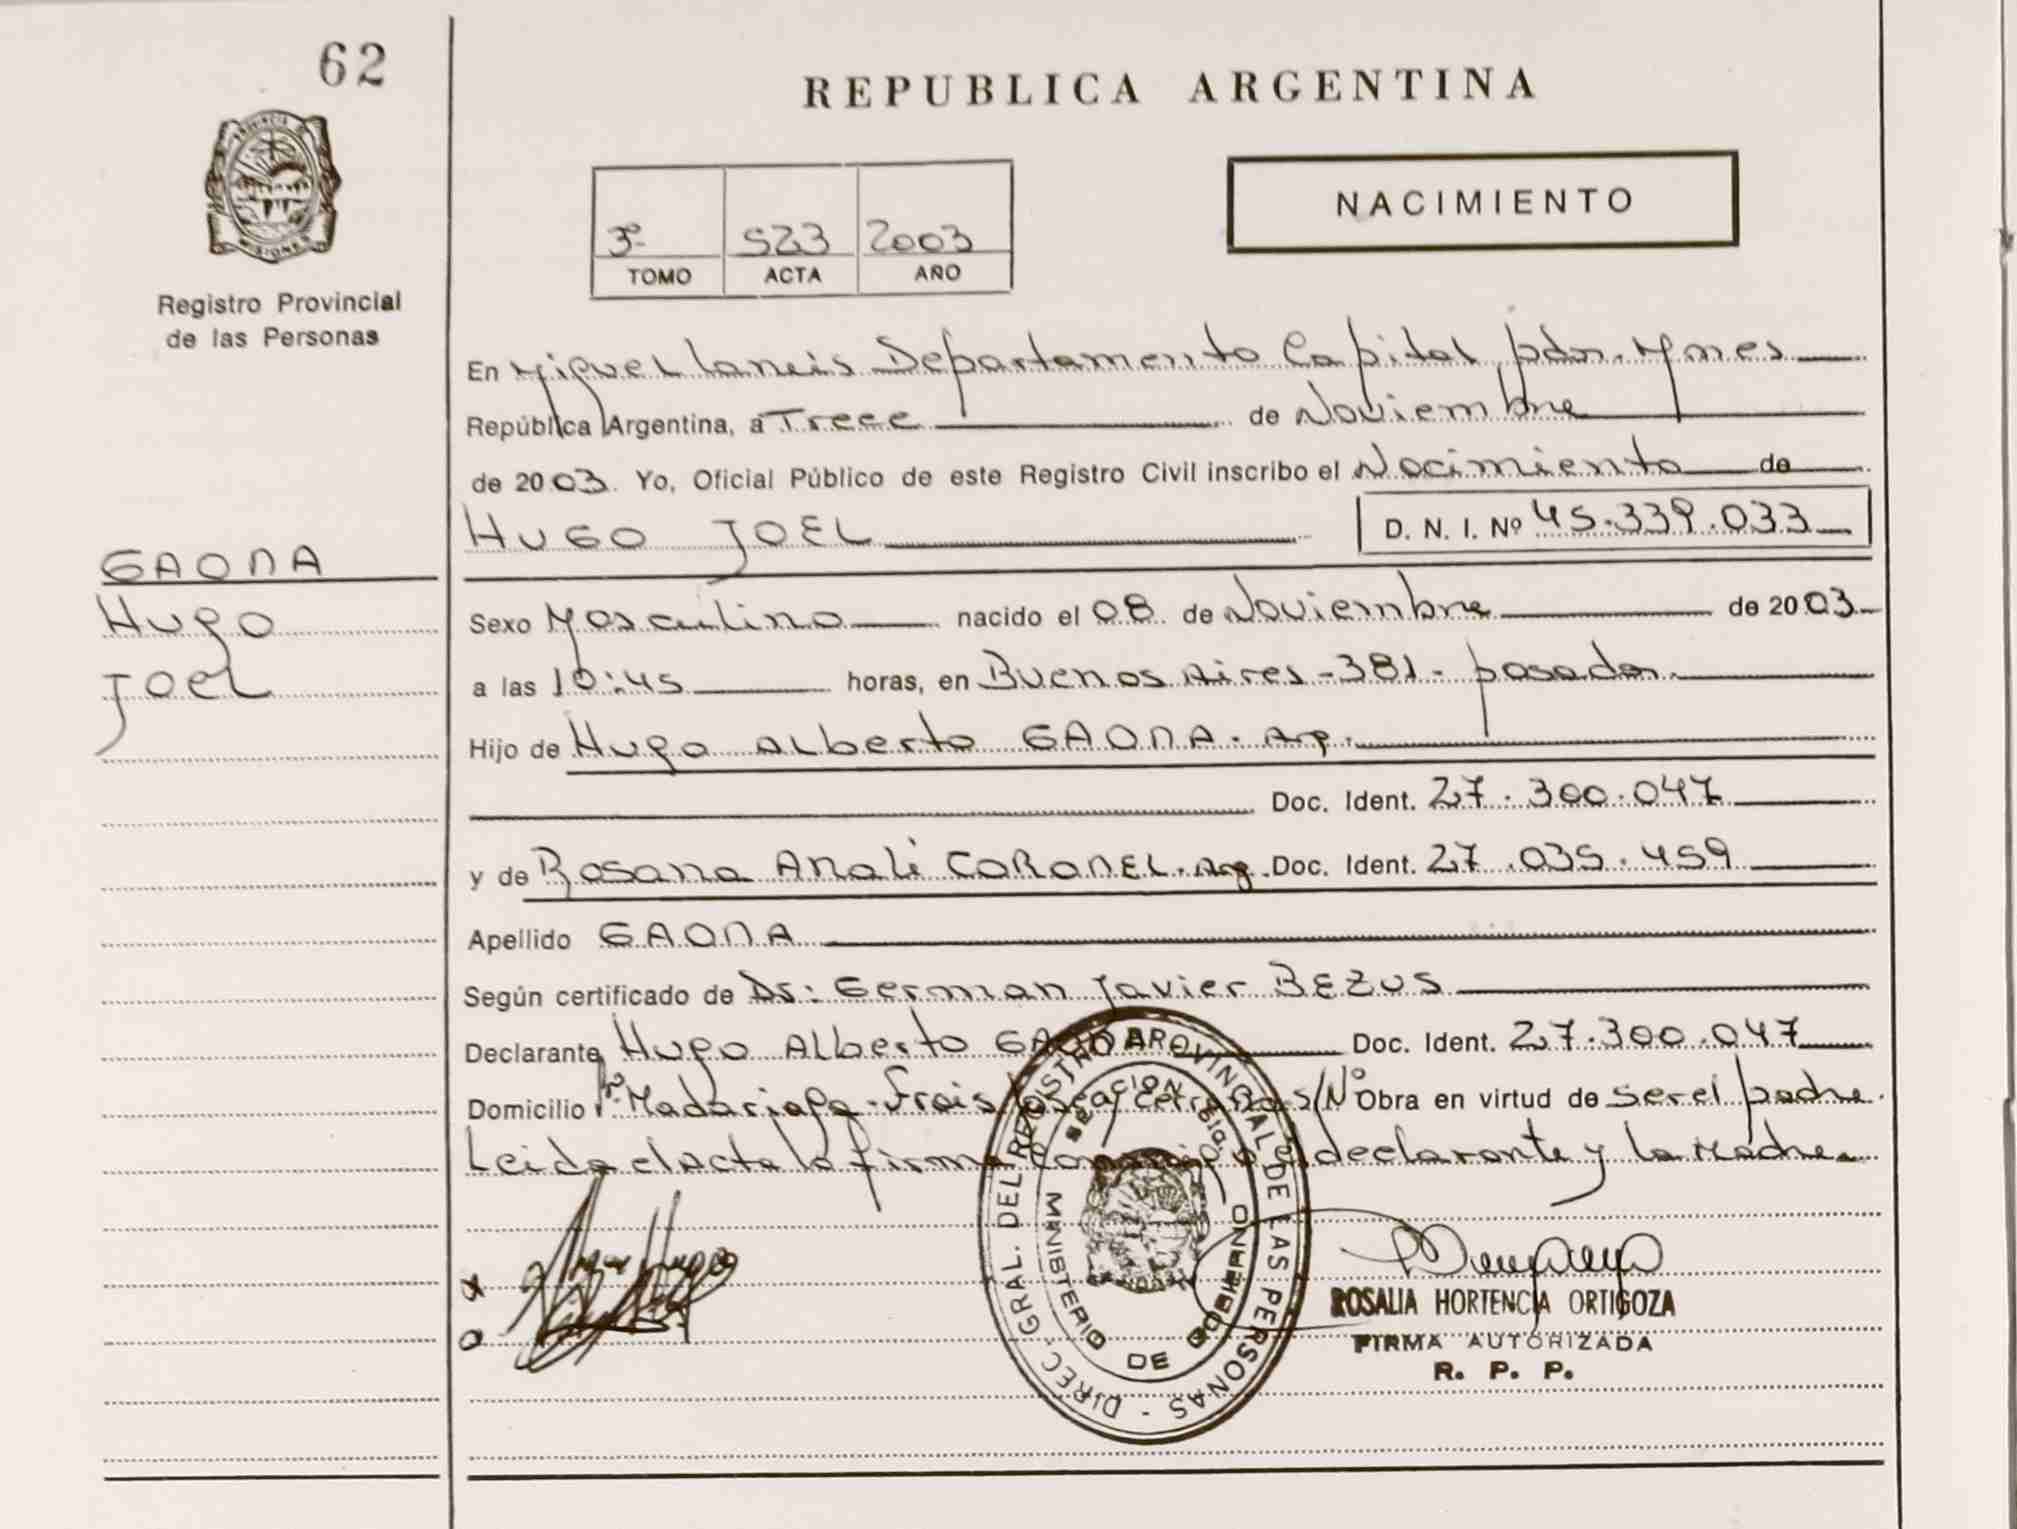 62
REPUBLICA ARGENTINA
PROVINCIA DE
MISIONES
Registro Provincial
de las Personas
3º 523 2003
TOMO ACTA AÑO
NACIMIENTO
En Miguel Lanús Departamento Capital, pdas. Mnes
República Argentina, a Trece de Noviembre
de 2003. Yo, Oficial Público de este Registro Civil inscribo el Nacimiento de
HUGO JOEL D. N. I. Nº 45.339.033
GAONA
Hugo
Joel
Sexo Masculino nacido el 08 de Noviembre de 2003
a las 10:45 horas, en Buenos Aires-381- posadas
Hijo de Hugo Alberto GAONA. Arg.
Doc. Ident. 27.300.047
y de Rosana Anali CORONEL. Arg. Doc. Ident. 27.035.459
Apellido GAONA
Según certificado de Dr: German Javier BEZUS
Declarante Hugo Alberto GAONA Doc. Ident. 27.300.047
Domicilio Bº Madariaga - S/Nº Obra en virtud de ser el padre.
Leida el acta la firma conmigo el declarante y la Madre.
DIREC. GRAL. DEL REGISTRO PROVINCIAL DE LAS PERSONAS -
MINISTERIO DE GOBIERNO
ROSALIA HORTENCIA ORTIGOZA
FIRMA AUTORIZADA
R. P. P.